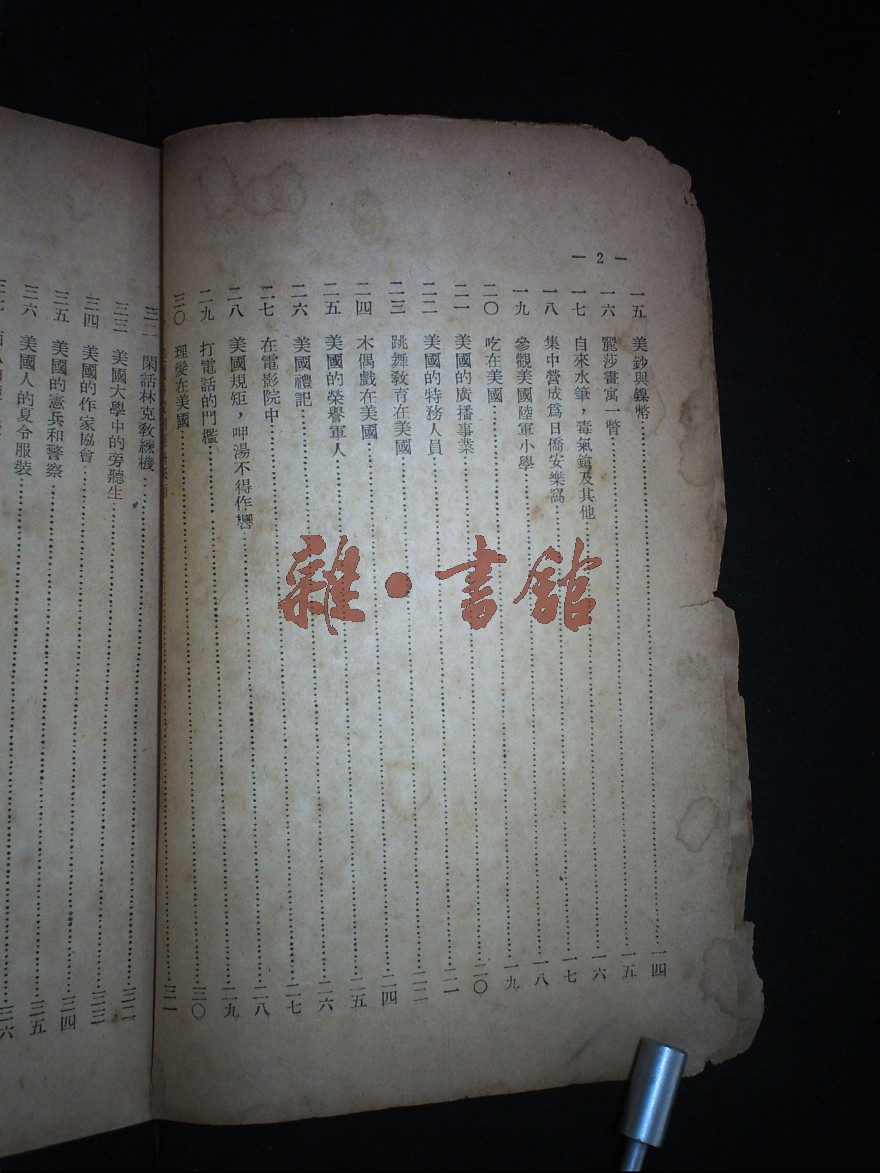 — 2 —
一五 美鈔與鎳幣 一四
一六 麗莎畫寓一 一五
一七 自來水筆，毒氣鎗及其他 一六
一八 集中營成爲日僑安樂窩 一七
一九 參觀美國陸軍小學 一八
二〇 吃在美國 一九
二一 美國的廣播事業 二〇
二二 美國的特務人員 二一
二三 跳舞教育在美國 二二
二四 木偶戲在美國 二四
二五 美國的榮譽軍人 二五
二六 美國禮記 二六
二七 在電影院中 二七
二八 美國規矩，呷湯不得作響 二八
二九 打電話的門檻 二九
三〇 理髮在美國 三〇
三一
三二 閑話林克教練機 三二
三三 美國大學中的旁聽生 三三
三四 美國的作家協會 三四
三五 美國的憲兵和警察 三五
三六 美國人的夏令服裝 三六
雜·書館